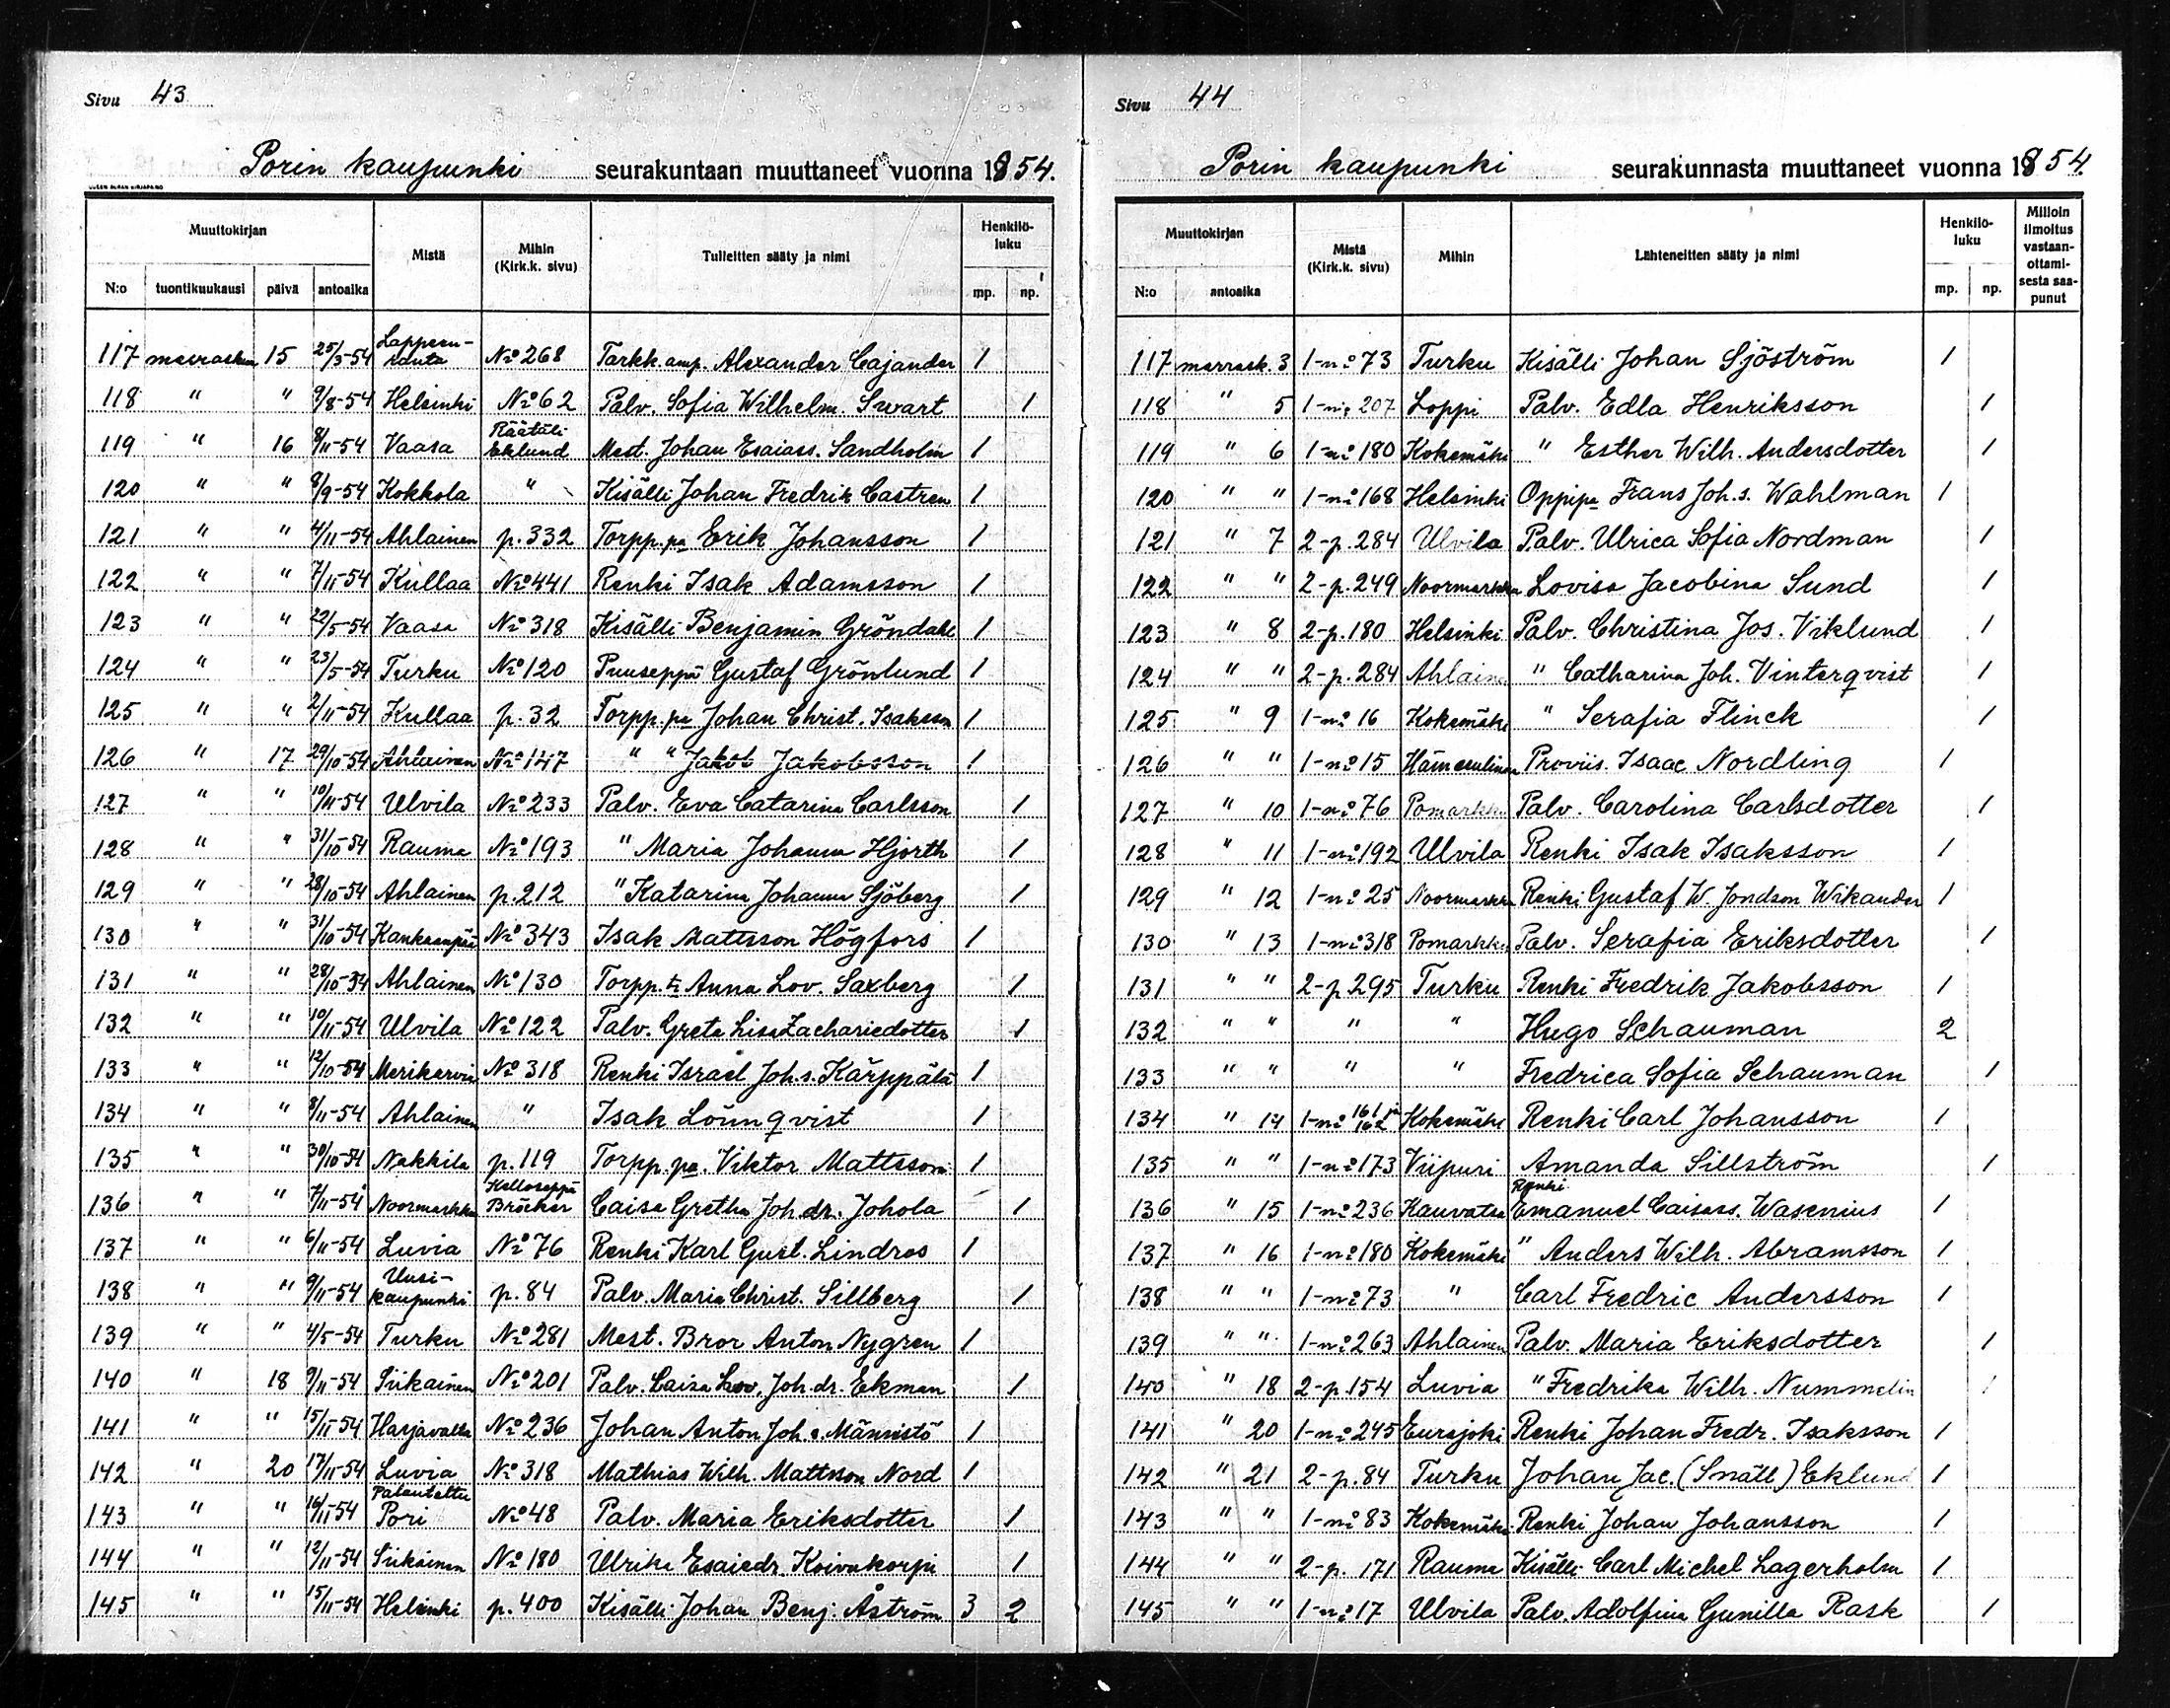 Sivu 43
Porin kaupunki seurakuntaan muuttaneet vuonna 1854.
Muuttokirjan Mistä Mihin (Kirk.k. sivu) Tulleitten sääty ja nimi Henkilö-luku
N:o tuontikuukausi päivä antoaika mp. np.
117 marraskuu 15 25/3-54 Lappeen-ranta No 268 Tarkk.amp. Alexander Cajander 1
118 " " 9/8-54 Helsinki No 62 Palv. Sofia Wilhelm. Swart 1
119 " 16 8/11-54 Vaasa Räätäli Eklund Mest. Johan Esaiass. Sandholm 1
120 " " 8/9-54 Kokkola " Kisälli Johan Fredrik Castren 1
121 " " 4/11-54 Ahlainen p. 332 Torpp.pa Erik Johansson 1
122 " " 7/11-54 Kullaa No 441 Renki Isak Adamsson 1
123 " " 22/5-54 Vaasa No 318 Kisälli Benjamin Gröndahl 1
124 " " 23/5-54 Turku No 120 Puuseppä Gustaf Grönlund 1
125 " " 2/11-54 Kullaa p. 32 Torpp.pa Johan Christ. Isaksson 1
126 " 17 29/10-54 Ahlainen No 147 " " Jakob Jakobsson 1
127 " " 10/11-54 Ulvila No 233 Palv. Eva Catarina Carlsson 1
128 " " 31/10-54 Rauma No 193 " Maria Johanna Hjorth 1
129 " " 28/10-54 Ahlainen p. 212 " Katarina Johanna Sjöberg 1
130 " " 31/10-54 Kankaanpää No 343 Isak Mattsson Högfors 1
131 " " 28/10-54 Ahlainen No 130 Torpp. tr Anna Lov. Saxberg 1
132 " " 10/11-54 Ulvila No 122 Palv. Greta Lisa Zachariedotter 1
133 " " 12/10-54 Merikarvia No 318 Renki Israel Joh.s. Kärppälä 1
134 " " 8/11-54 Ahlainen " Isak Lönnqvist 1
135 " " 30/10-54 Nakkila p. 119 Torpp.pa. Viktor Mattsson 1
136 " " 7/11-54 Noormarkku Kelloseppä Bröcker Caisa Gretha Joh.dr. Johola 1
137 " " 6/11-54 Luvia No 76 Renki Karl Gust. Lindros 1
138 " " 9/11-54 Uusi-kaupunki p. 84 Palv. Maria Christ. Sillberg 1
139 " " 4/5-54 Turku No 281 Mest. Bror Anton Nygren 1
140 " 18 9/11-54 Siikainen No 201 Palv. Caisa Lov. Joh.dr. Ekman 1
141 " " 15/11-54 Harjavalta No 236 Johan Anton Joh.s. Männistö 1
142 " 20 17/11-54 Luvia No 318 Mathias Wilh. Mattsson Nord 1
143 " " 16/11-54 Palautettu Pori No 48 Palv. Maria Eriksdotter 1
144 " " 12/11-54 Siikainen No 180 Ulrika Esaiedr. Koivukorpi 1
145 " " 15/11-54 Helsinki p. 400 Kisälli Johan Benj. Åström 3 2
Sivu 44
Porin kaupunki seurakunnasta muuttaneet vuonna 1854.
Muuttokirjan Mistä (Kirk.k. sivu) Mihin Lähteneitten sääty ja nimi Henkilö-luku Milloin ilmoitus vastaan-ottami-sesta saa-punut
N:o antoaika mp. np.
117 marrask. 3 1-no 73 Turku Kisälli Johan Sjöström 1
118 " 5 1-no 207 Loppi Palv. Edla Henriksson 1
119 " 6 1-no 180 Kokemäki " Esther Wilh. Andersdotter 1
120 " " 1-no 168 Helsinki Oppipa Frans Joh.s. Wahlman 1
121 " 7 2-p. 284 Ulvila Palv. Ulrica Sofia Nordman 1
122 " " 2-p. 249 Noormarkku Lovisa Jacobina Sund 1
123 " 8 2-p. 180 Helsinki Palv. Christina Jos. Viklund 1
124 " " 2-p. 284 Ahlainen " Catharina Joh. Vinterqvist 1
125 " 9 1-no 16 Kokemäki " Serafia Flinck 1
126 " " 1-no 15 Hämeenlinna Proviis. Isaac Nordling 1
127 " 10 1-no 76 Pomarkku Palv. Carolina Carlsdotter 1
128 " 11 1-no 192 Ulvila Renki Isak Isaksson 1
129 " 12 1-no 25 Noormarkku Renki Gustaf W. Jondson Wikander 1
130 " 13 1-no 318 Pomarkku Palv. Serafia Eriksdotter 1
131 " " 2-p 295 Turku Renki Fredrik Jakobsson 1
132 " " " " Hugo Schauman 2
133 " " " " Fredrica Sofia Schauman 1
134 " 14 1-no 161 ja 162 Kokemäki Renki Carl Johansson 1
135 " " 1-no 173 Viipuri Amanda Sillström 1
136 " 15 1-no 236 Kauvatsa Renki Emanuel Caisass. Wasenius 1
137 " 16 1-no 180 Kokemäki " Anders Wilh. Abramsson 1
138 " " 1-no 73 " Carl Fredric Andersson 1
139 " " 1-no 263 Ahlainen Palv. Maria Eriksdotter 1
140 " 18 2-p. 154 Luvia " Fredrika Wilh. Nummelin 1
141 " 20 1-no 245 Eurajoki Renki Johan Fredr. Isaksson 1
142 " 21 2-p. 84 Turku Johan Jac. (Snäll) Eklund 1
143 " " 1-no 83 Kokemäki Renki Johan Johansson 1
144 " " 2-p. 171 Rauma Kisälli Carl Michel Lagerholm 1
145 " " 1-no 17 Ulvila Palv. Adolfina Gunilla Rask 1